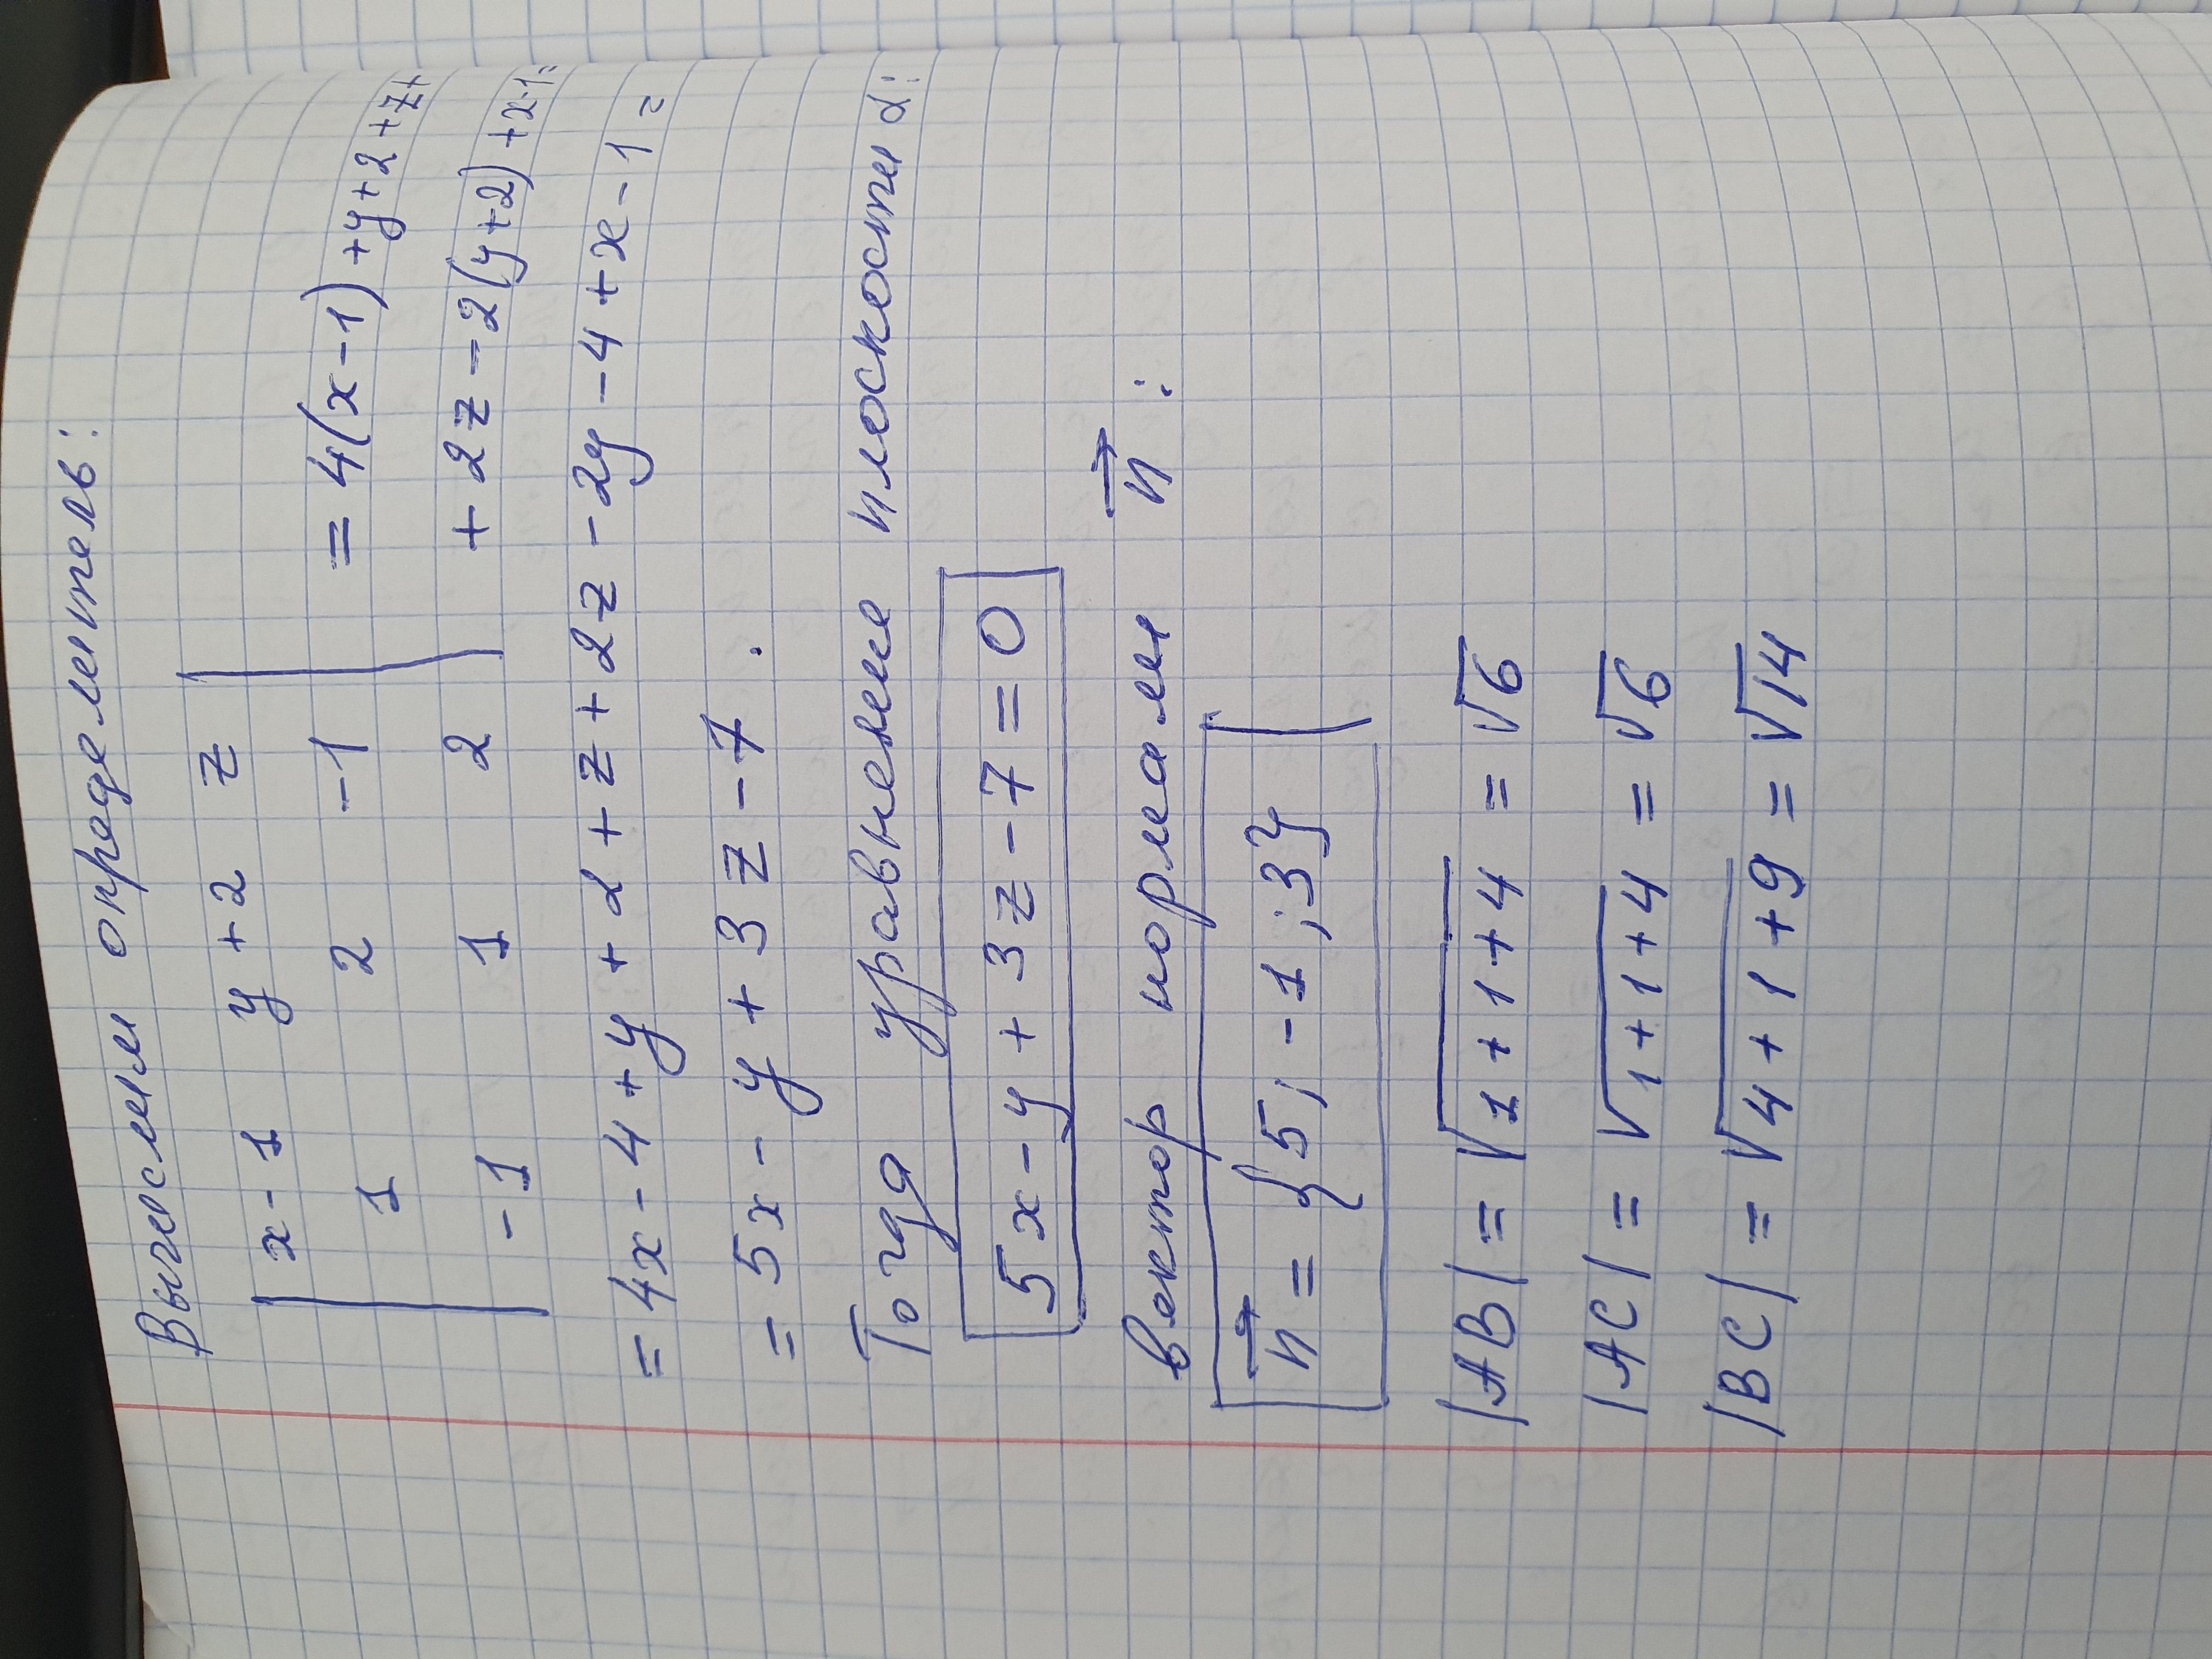 Вычислим определитель:
| x-1 y+2 z |
| 1 2 -1 | = 4(x-1)+y+2+z+
| -1 1 2 | +2z-2(y+2)+x-1=
= 4x-4+y+2+z+2z-2y-4+x-1=
= 5x-y+3z-7.
Тогда уравнение плоскости α:
5x-y+3z-7=0
вектор нормали n⃗:
n⃗ = {5; -1; 3}
|AB| = √1+1+4 = √6
|AC| = √1+1+4 = √6
|BC| = √4+1+9 = √14